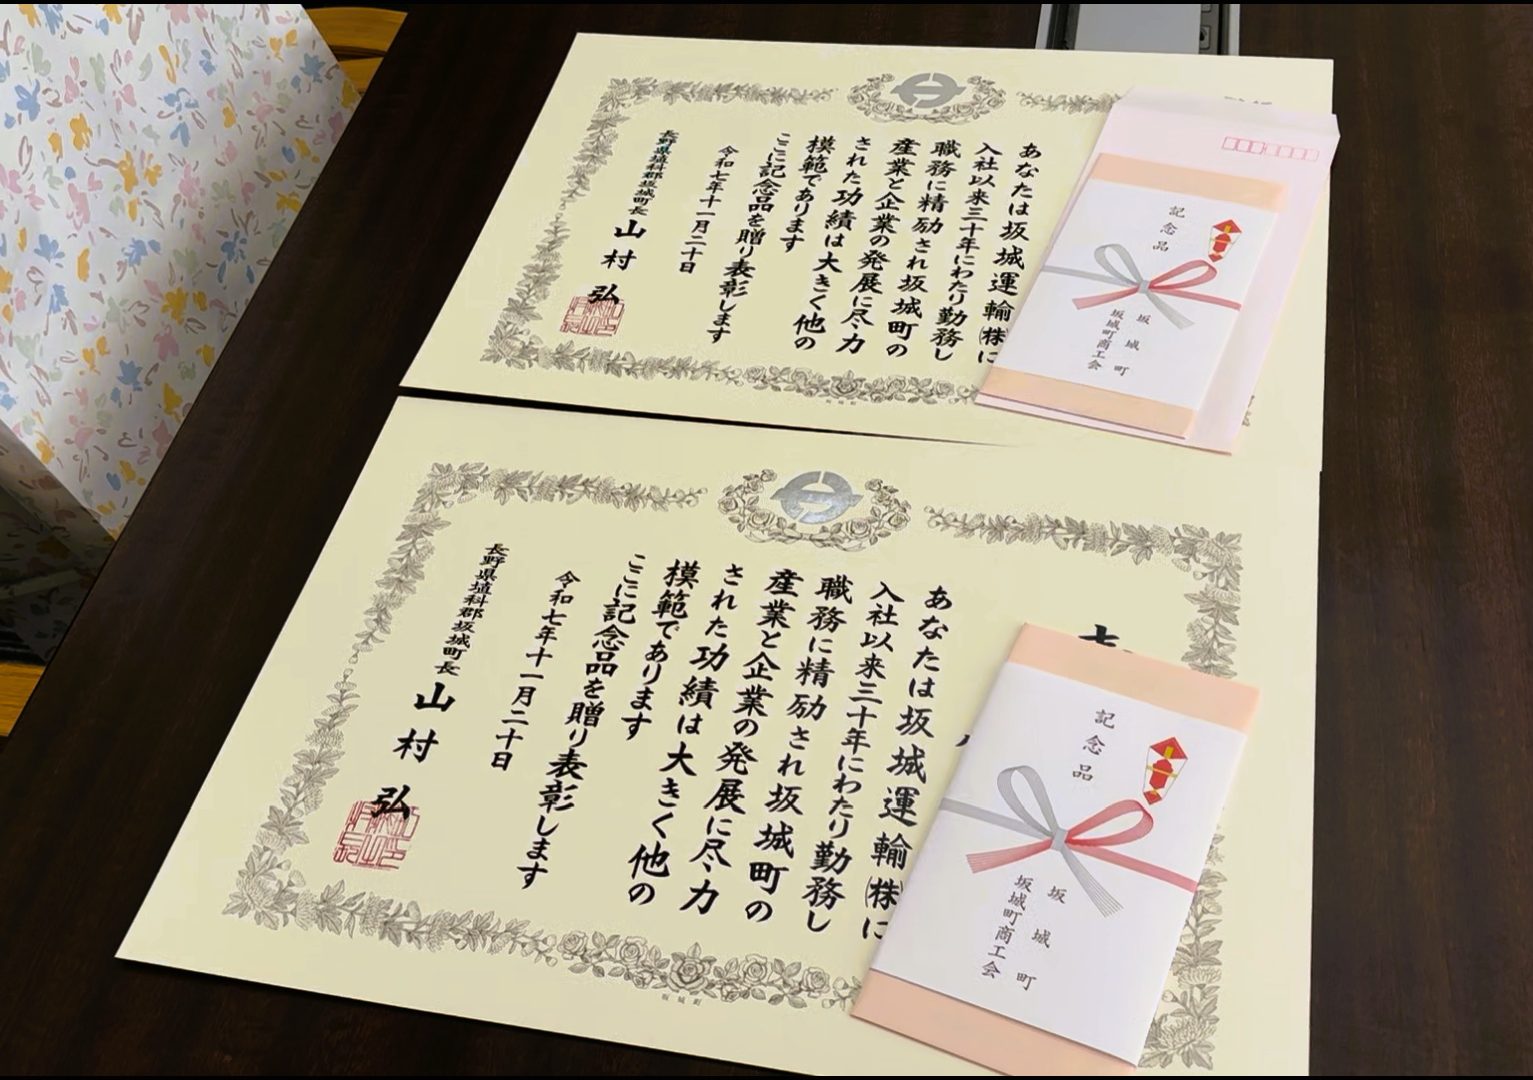 あなたは坂城運輸㈱に
入社以来三十年にわたり勤務し
職務に精励され坂城町の
産業と企業の発展に尽力
された功績は大きく他の
模範であります
ここに記念品を贈り表彰します
令和七年十一月二十日
長野県埴科郡坂城町長
山村弘
記念品
坂城町
坂城町商工会
あなたは坂城運輸㈱に
入社以来三十年にわたり勤務し
職務に精励され坂城町の
産業と企業の発展に尽力
された功績は大きく他の
模範であります
ここに記念品を贈り表彰します
令和七年十一月二十日
長野県埴科郡坂城町長
山村弘
坂城町
記念品
坂城町
坂城町商工会